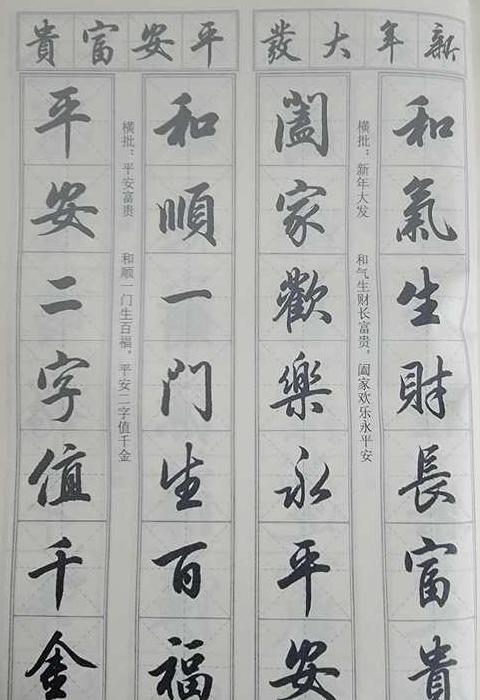 新年大發
和氣生財長富貴
横批：新年大发
和气生财长富贵，阖家欢乐永平安
闔家歡樂永平安
平安富貴
和順一門生百福
横批：平安富贵
和顺一门生百福，平安二字值千金
平安二字值千金